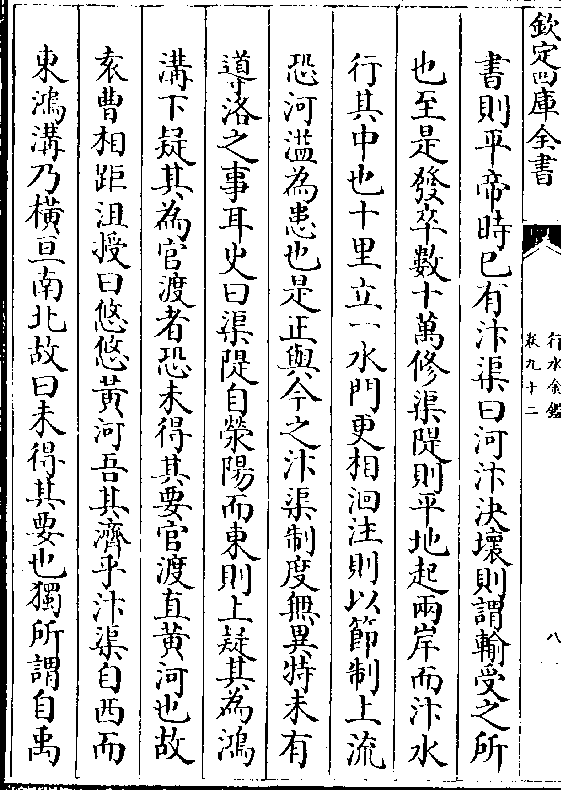 欽定四庫全書
行水金鑑
卷九十二
八
書則平帝時已有汴渠曰河汴決壞則謂輸受之所
也至是發卒數十萬修渠隄則平地起兩岸而汴水
行其中也十里立一水門更相洄注則以節制上流
恐河濫為患也是正與今之汴渠制度無異特未有
導洛之事耳史曰渠隄自滎陽而東則上疑其為鴻
溝下疑其為官渡者恐未得其要官渡直黃河也故
袁曹相距沮授曰悠悠黃河吾其濟乎汴渠自西而
東鴻溝乃橫亘南北故曰未得其要也獨所謂自禹